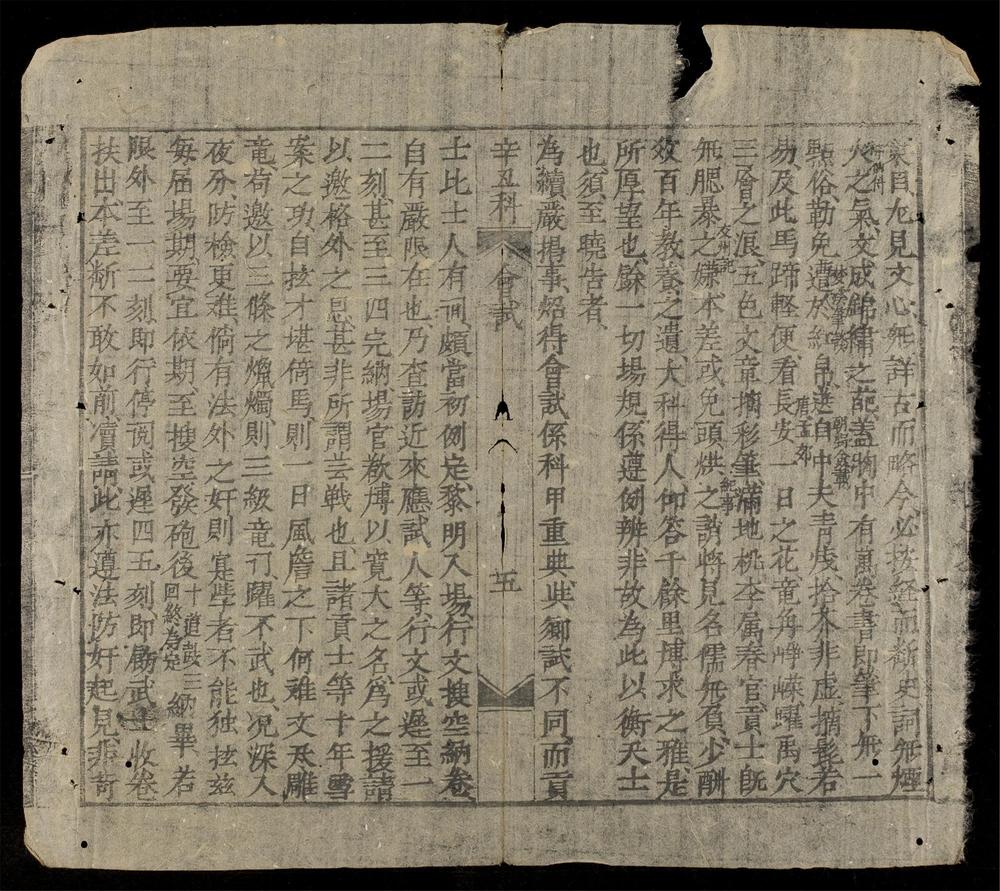 自尤見文心無詳古而略今必按經而斷史詞無煙
火之氣文成錦繡之葩蓋胸中有萬卷書即筆下無一
點俗勒免遭於紅帛選自中夫青殘拾本非虛摘髭若
易及此馬蹄輕便看長安一日之花竜角崢嶸躍禹穴
三層之浪五色文章摛彩筆滿地桃李属春官貢士既
無腮暴之嫌本差或免頭烘之誚將見名儒無負少酬
效百年教養之遺大科得人仰答千餘里博求之雅是
所厚望也餘一切場規係遵例辨非故為此以衡天士
也須至曉告者
為續嚴揭事照得會試係科甲重典與鄉試不同而貢
辛丑科 會試 五
士比士人有間頗當初例定黎明入場行文搜空納卷
自有嚴限在也乃查訪近來應試人等行文或遲至一
二刻甚至三四完納場官歉博以寬大之名為之援請
以邀格外之恩甚非所謂芸戰也且諸貢士等十年雪
案之功自挾才堪倚馬則一日風簷之下何難文不雕
竜荷邀以三條之爥燭則三級竜門躍不武也况深入
夜分防檢更难倘有法外之奸則寔壁者不能独挾茲
每届場期要宜依期至搜空發砲後十遒鼓三回終為定納畢若
限外至一二刻即行停間或遲四五刻即勵武士收卷
扶出本差断不敢如前凟請此亦遵法防奸起見非苛